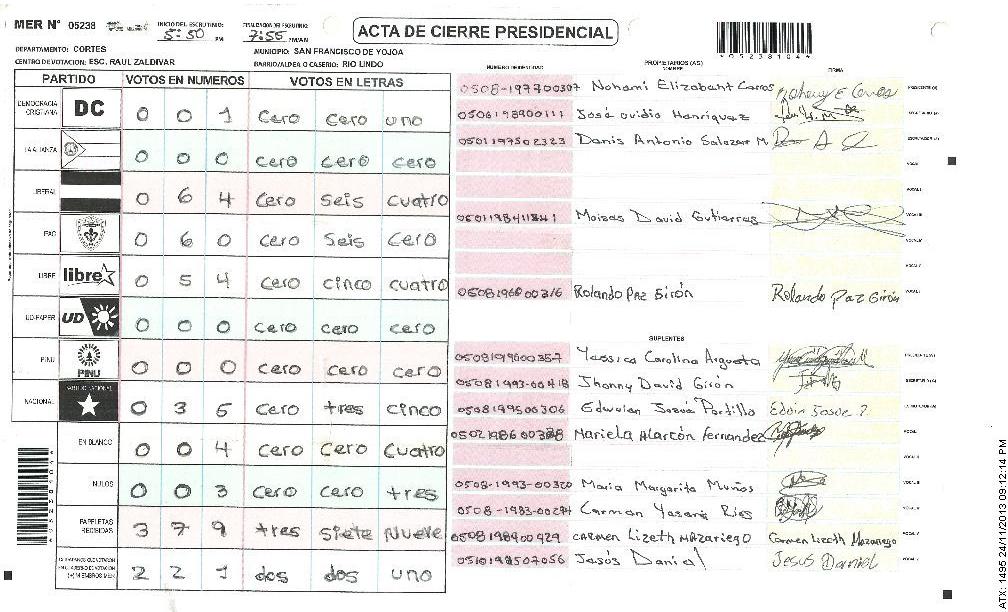 MER Nº 05238
INICIO DEL ESCRUTINIO: 5:50 PM
FINALIZACION DEL ESCRUTINIO: 7:55 PM/AM
ACTA DE CIERRE PRESIDENCIAL
052381044
DEPARTAMENTO: CORTES
MUNICIPIO: SAN FRANCISCO DE YOJOA
CENTRO DE VOTACION: ESC. RAUL ZALDIVAR
BARRIO/ALDEA O CASERIO: RIO LINDO
PARTIDO VOTOS EN NUMEROS VOTOS EN LETRAS
NUMERO DE IDENTIDAD PROPIETARIOS (AS) NOMBRE FIRMA
DEMOCRACIA CRISTIANA DC 0 0 1 cero cero uno
LA ALIANZA 0 0 0 cero cero cero
LIBERAL 0 6 4 cero seis cuatro
PAC 0 6 0 cero seis cero
LIBRE libre 0 5 4 cero cinco cuatro
UD-FAPER UD 0 0 0 cero cero cero
PINU PINU 0 0 0 cero cero cero
NACIONAL PARTIDO NACIONAL 0 3 5 cero tres cinco
EN BLANCO 0 0 4 cero cero cuatro
NULOS 0 0 3 cero cero tres
PAPELETAS RECIBIDAS 3 7 9 tres siete nueve
2 2 1 dos dos uno
0508-197700307 Nohami Elizabant
0506198900111 José ovidio Henriquez
0501197502323 Danis Antonio Salazar M
Moisas David Gutierras
Rolando Paz Girón Rolando Paz Girón
SUPLENTES
0508199600357 Yassica Carolina Argueta
05081993-00418 Jhonny David Girón
0508199500306 Josué Portillo
Mariela Alarcón Fernandez
0508-1993-00320 Maria Margarita Muños
0508-1983-00294 Carman
0508198900929 CARMEN Lizeth MAzariego Carmen Lizeth Mazariego
0510198507056 Jasús Danial Jesus Daniel
ATX: 1495 24/11/2013 09:12:14 PM